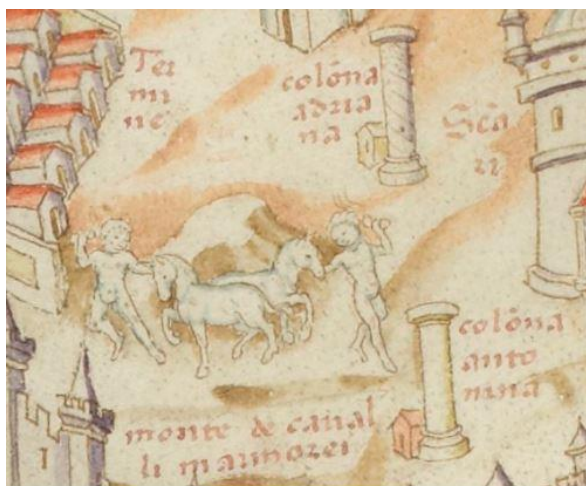 Ter
mi
ne
colōna
adria
na
colōna
anto
nina
monte de caval
li marmorei